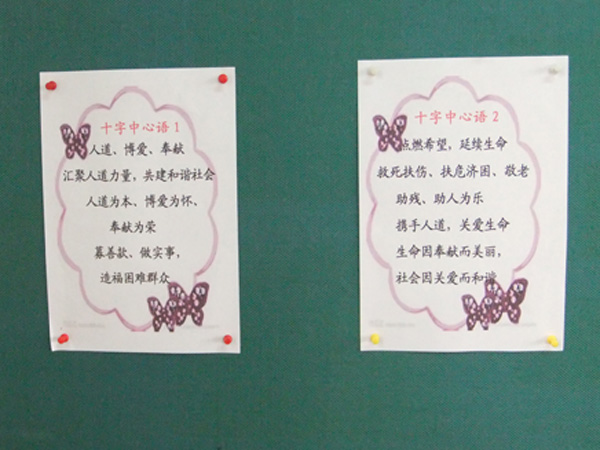 十字中心语1
人道、博爱、奉献
汇聚人道力量,共建和谐社会
人道为本、博爱为怀、
奉献为荣
募善款、做实事,
造福困难群众
十字中心语2
点燃希望,延续生命
救死扶伤、扶危济困、敬老
助残、助人为乐
携手人道,关爱生命
生命因奉献而美丽,
社会因关爱而和谐